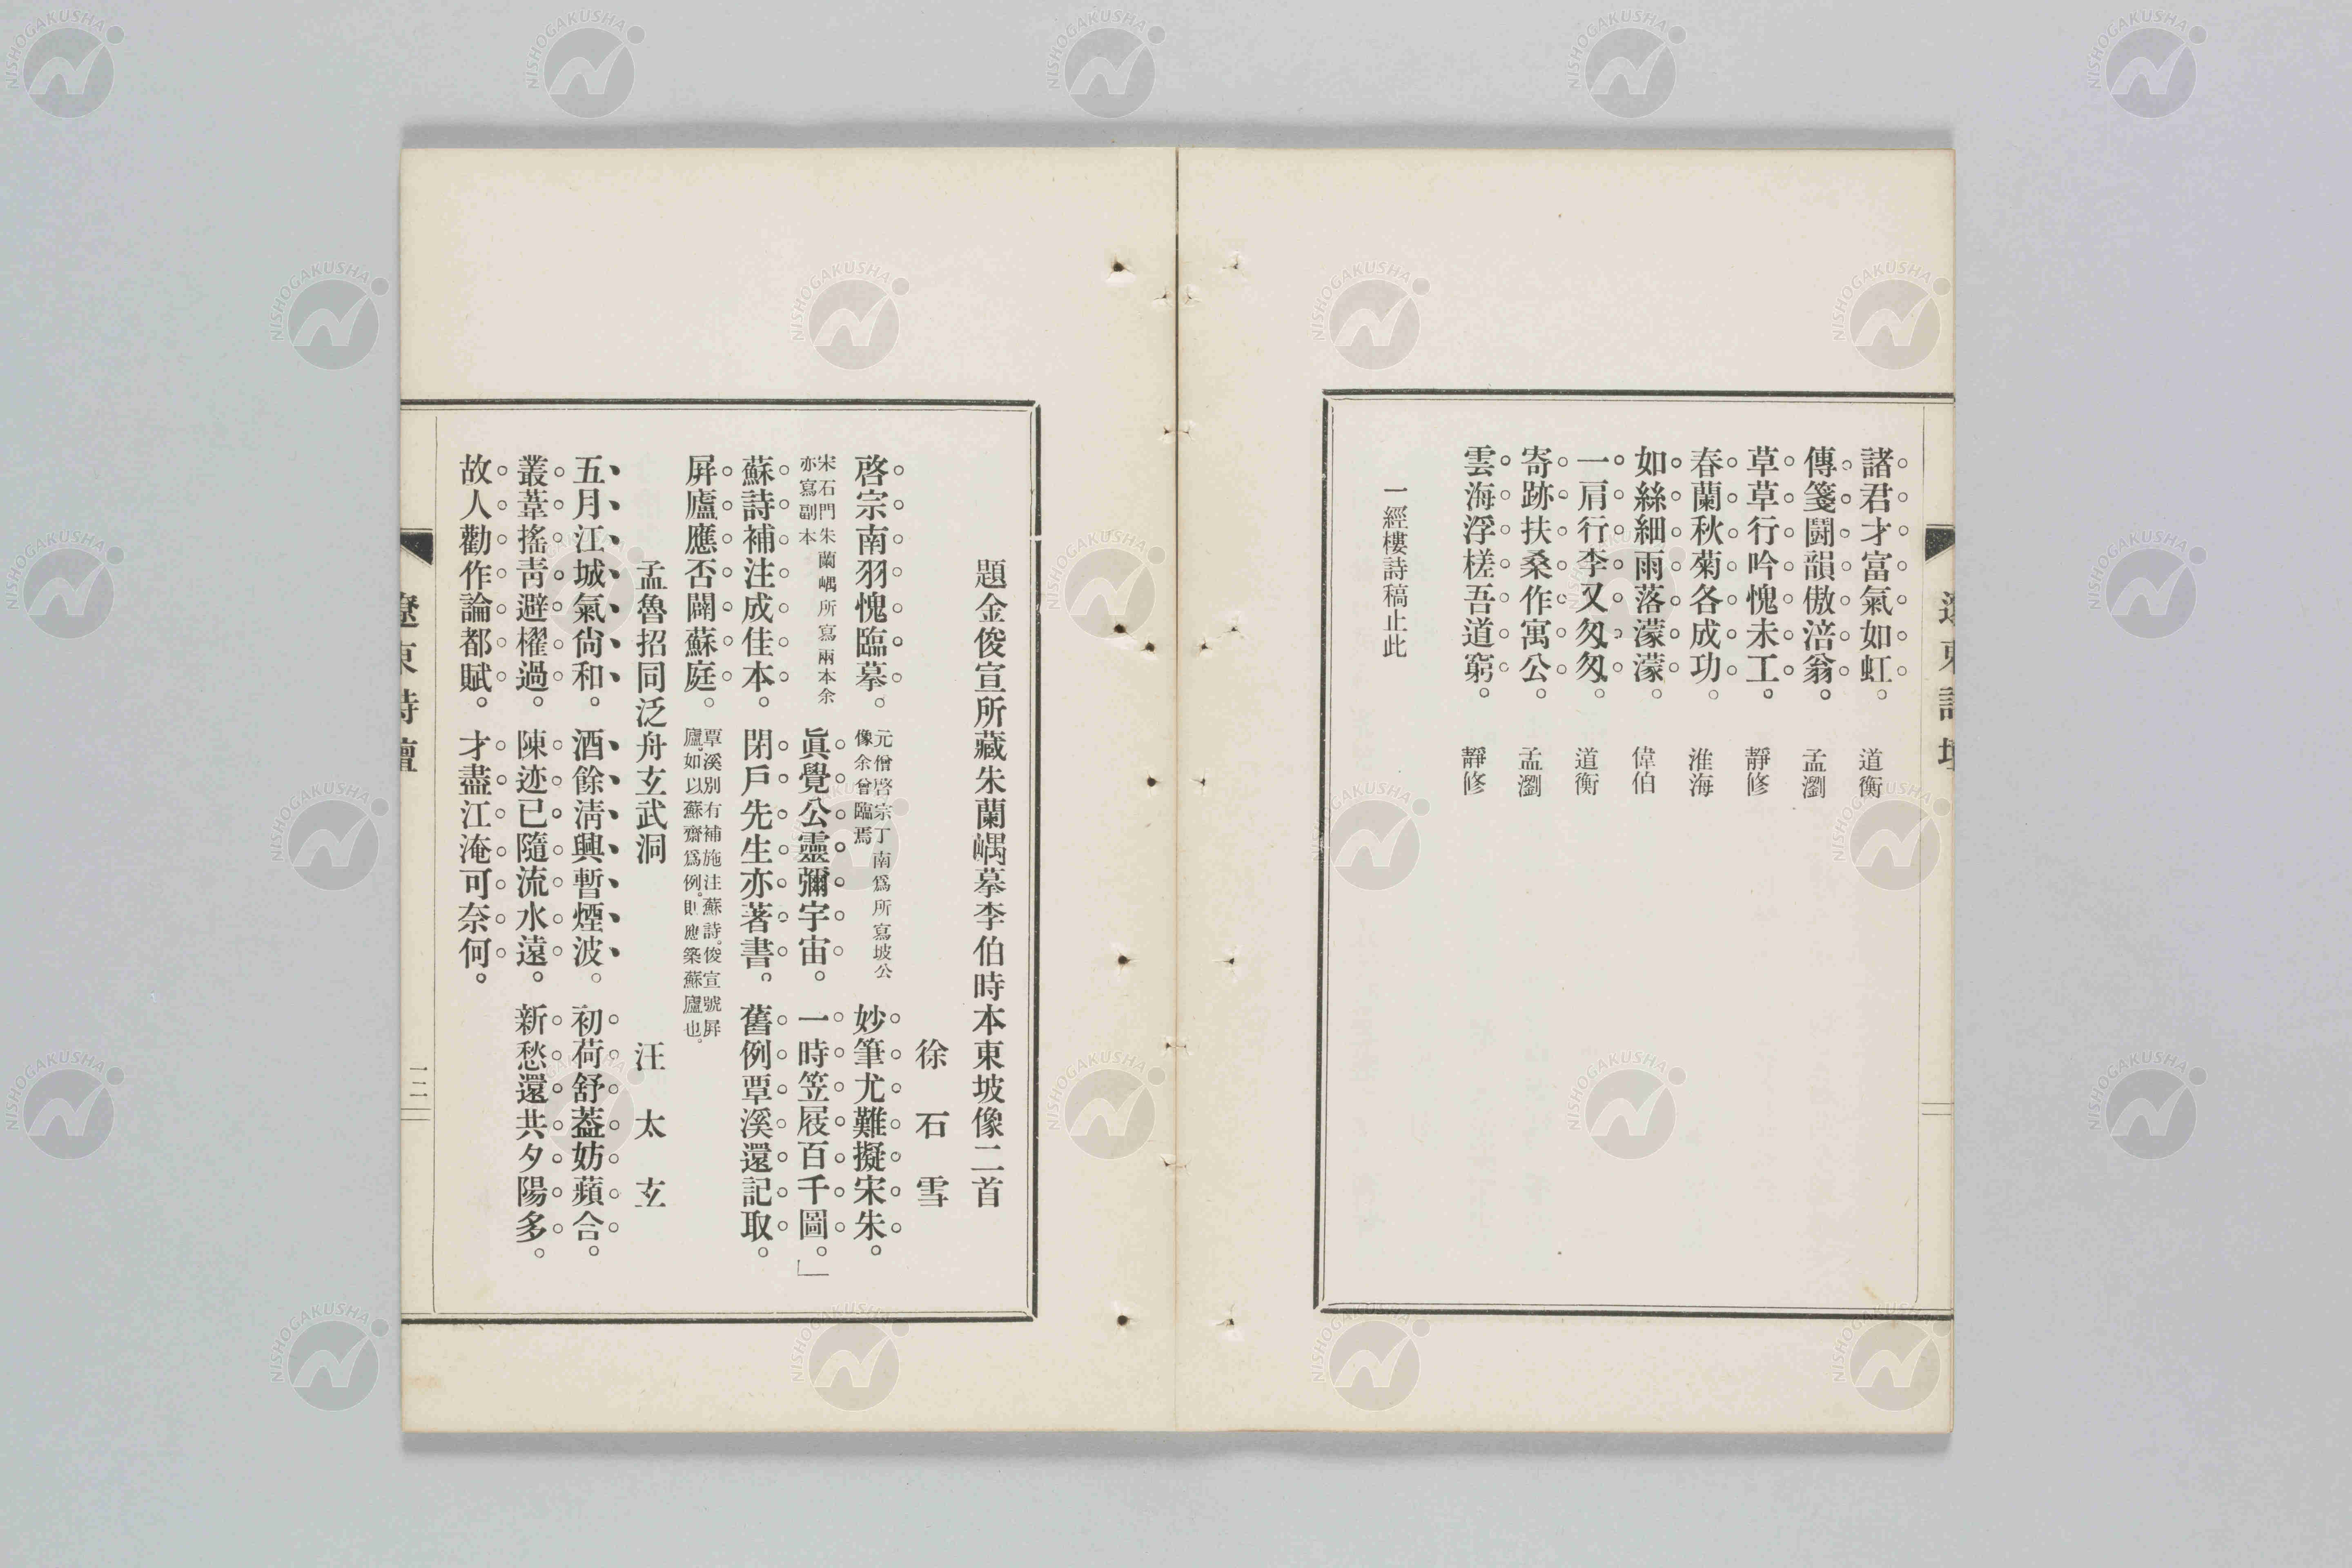 諸君才富氣如虹。 道衡
傳箋鬪韻傲涪翁。 孟瀏
草草行吟愧未工。 靜修
春蘭秋菊各成功。 淮海
如絲細雨落濛濛。 偉伯
一肩行李又匆匆。 道衡
寄跡扶桑作寓公。 孟瀏
雲海浮槎吾道窮。 靜修
一經樓詩稿止此
題金俊宣所藏朱蘭嵎摹李伯時本東坡像二首
徐石雪
啓宗南羽愧臨摹。 元僧啓宗丁南爲所寫坡公像余曾臨焉 妙筆尤難擬宋朱。
宋石門朱蘭嵎所寫兩本余亦寫副本 眞覺公靈彌宇宙。 一時笠屐百千圖。」
蘇詩補注成佳本。 閉戶先生亦著書。 舊例覃溪還記取。
屛廬應否闢蘇庭。 覃溪別有補施注蘇詩。俊宣號屛廬。如以蘇齋爲例。則應築蘇廬也。
孟魯招同泛舟玄武洞 汪太玄
五月江城氣尙和。 酒餘淸興暫煙波。 初荷舒葢妨蘋合。
叢葦搖靑避櫂過。 陳迹已隨流水遠。 新愁還共夕陽多。
故人勸作論都賦。 才盡江淹可奈何。
遼東詩壇
一二
NISHOGAKUSHA